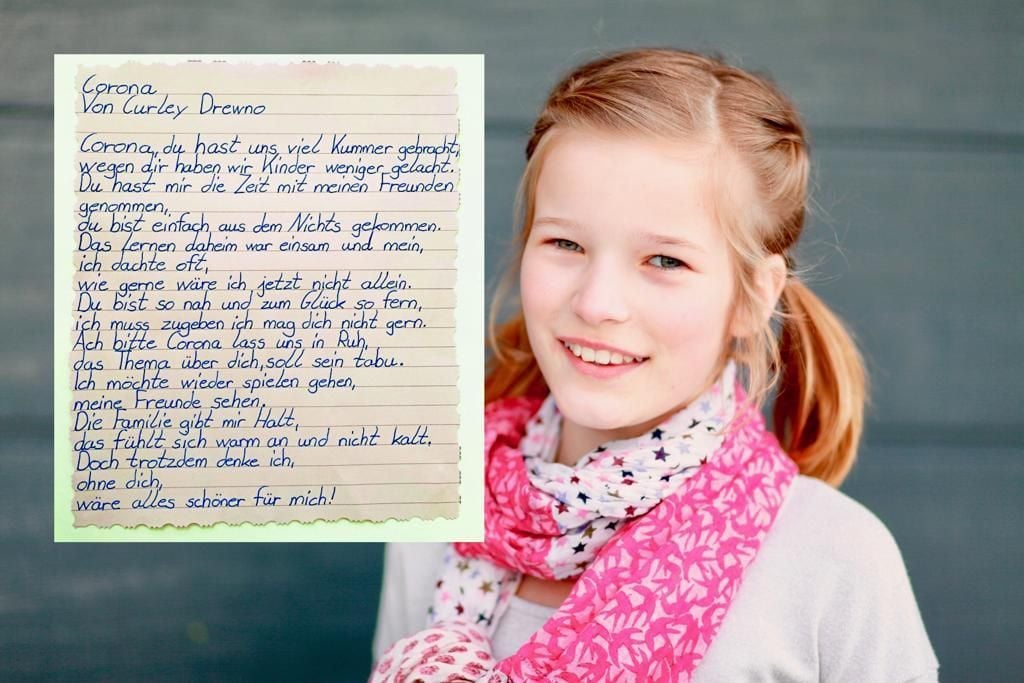 Corona
Von Curley Drewno
Corona, du hast uns viel Kummer gebracht,
wegen dir haben wir Kinder weniger gelacht.
Du hast mir die Zeit mit meinen Freunden
genommen,
du bist einfach aus dem Nichts gekommen.
Das Lernen daheim war einsam und mein,
ich dachte oft,
wie gerne wäre ich jetzt nicht allein.
Du bist so nah und zum Glück so fern,
ich muss zugeben ich mag dich nicht gern.
Ach bitte Corona lass uns in Ruh,
das Thema über dich, soll sein tabu.
Ich möchte wieder spielen gehen,
meine Freunde sehen,
Die Familie gibt mir Halt,
das fühlt sich warm an und nicht kalt.
Doch trotzdem denke ich,
ohne dich,
wäre alles schöner für mich!